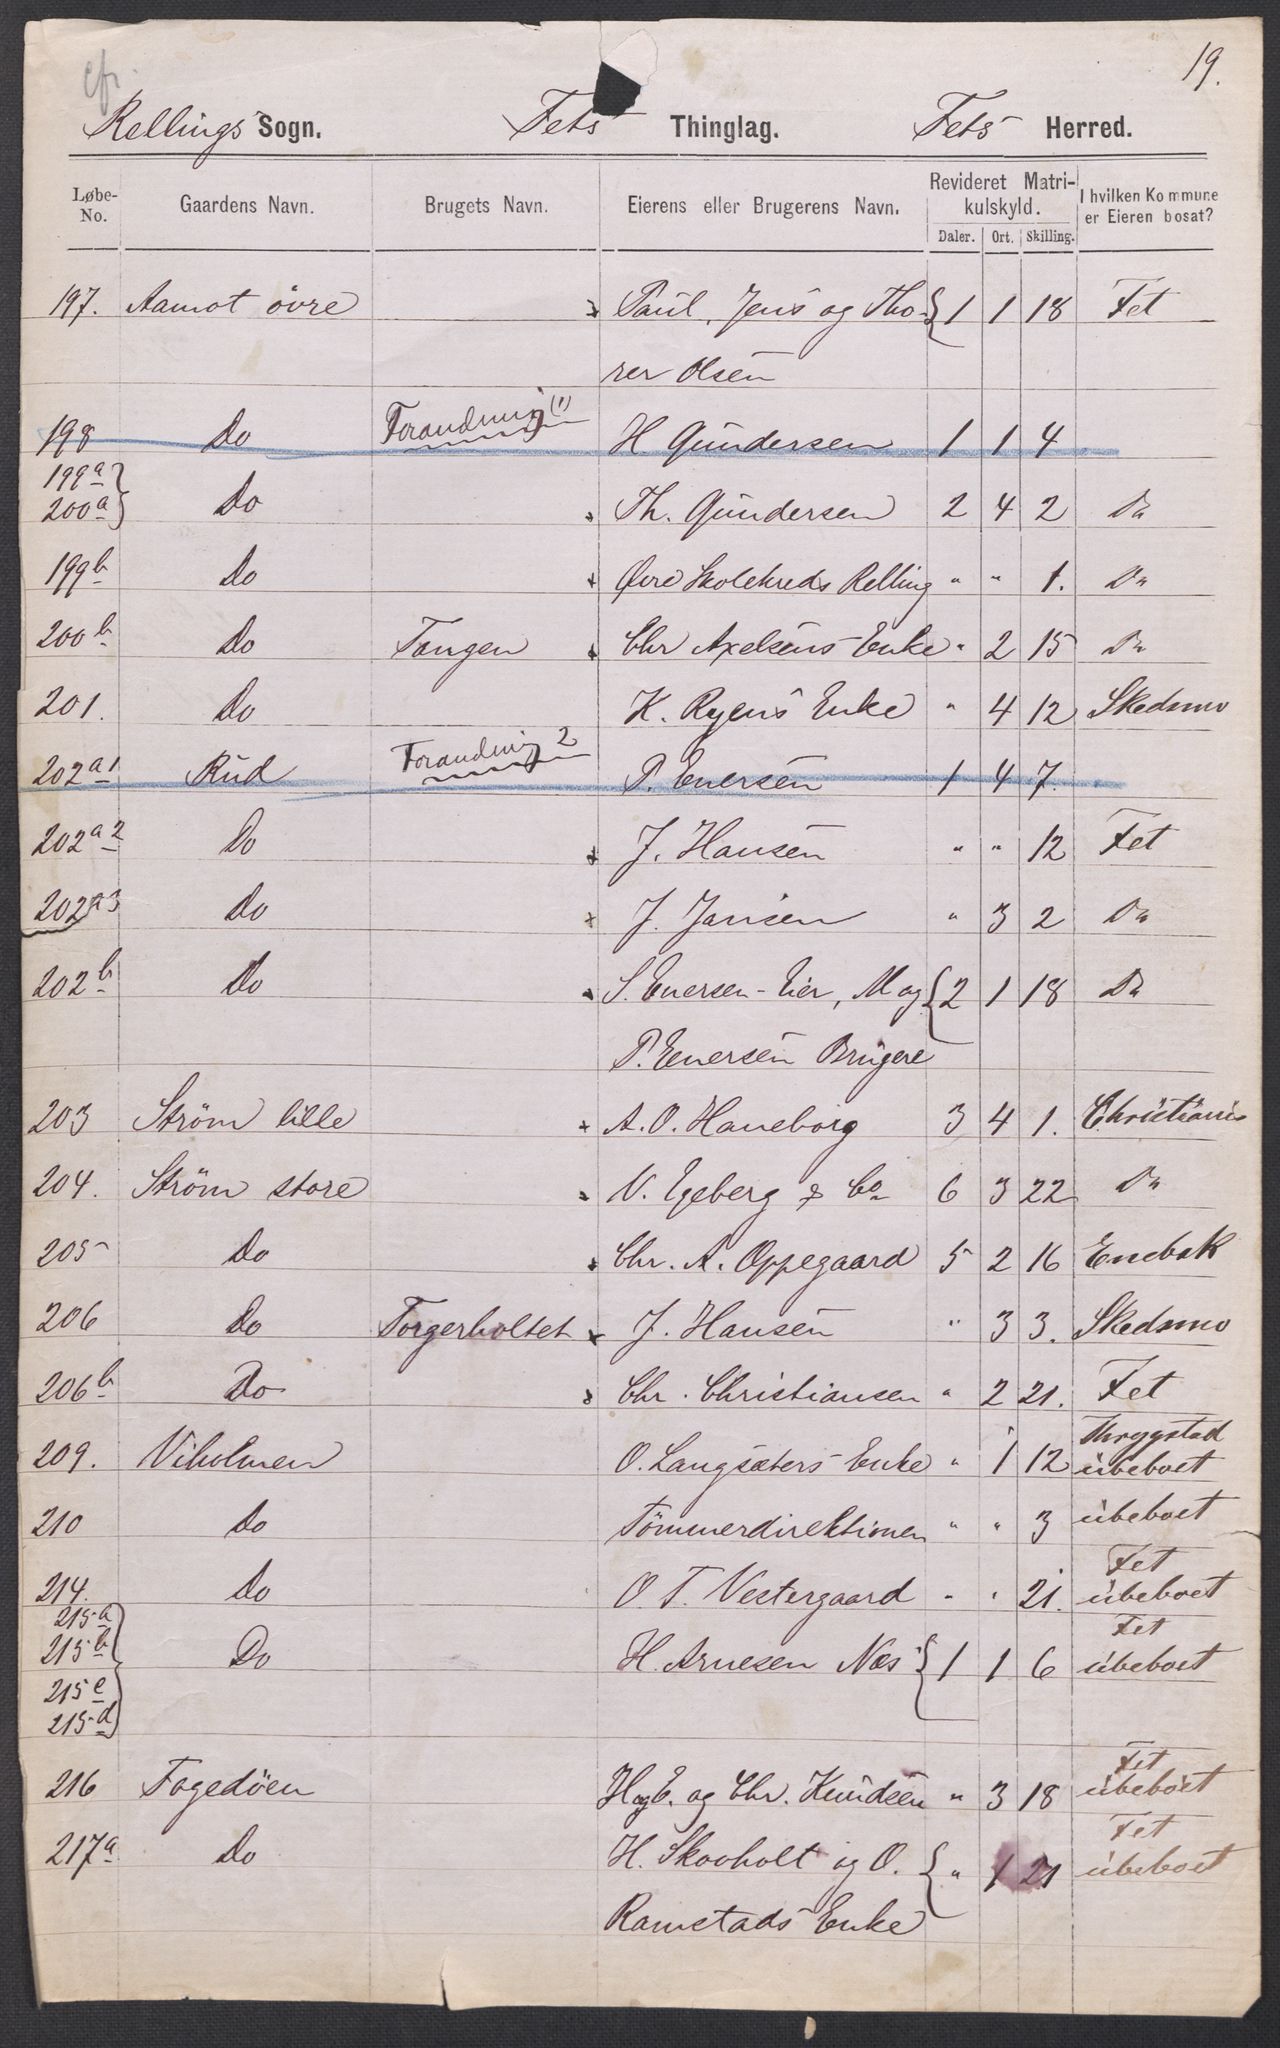 cfr.
19.
Rellings Sogn. Fets Thinglag. Fets Herred.
Løbe-No. Gaardens Navn. Brugets Navn. Eierens eller Brugerens Navn. Revideret Matrikulskyld. Daler. Ort. Skilling. I hvilken Kommune er Eieren bosat?
197. Aamot övre Paul, Jens og Tho- 1 1 18 Fet
rer Olsen
198 Do Forandring (1) H Gundersen 1 1 4
199a 200a Do Th. Gundersen 2 4 2 Do
199b Do Øvre Skolekreds Relling " " 1. Do
200b Do Tangen Chr Axelsens Enke " 2 15 Do
201. Do K. Ryens Enke " 4 12 Skedsmo
202a1 Rud Forandring 2 P. Enersen 1 4 7.
202a2 Do J. Hansen " " 12 Fet
202a3 Do J. Jansen " 3 2 Do
202b Do S. Enersen - Eier, M og 2 1 18 Do
P. Enersen Brugere
203 Ström lille A. O. Haneborg 3 4 1. Christiania
204. Ström store N. Egeberg & Co 6 3 22 Do
205 Do Chr. A. Oppegaard 5 2 16 Enebak
206 Do Torgerholtet J. Hansen " 3 3. Skedsmo
206b Do Chr. Christiansen " 2 21. Fet
209. Viholmen O. Langsæters Enke " 1 12 Thrygstad ubeboet
210 Do Tömmerdirektionen " " 3 ubeboet
214. Do O. T. Vestergaard " " 21. Fet ubeboet
215a 215b 215c 215d Do H. Arnesen Næs 1 1 6 Fet ubeboet
216 Fogedöen H og E. og Chr. Knudsen " 3 18 Fet ubeboet
217a Do H. Skovholt og O. " 1 21 Fet ubeboet
Ramstads Enke